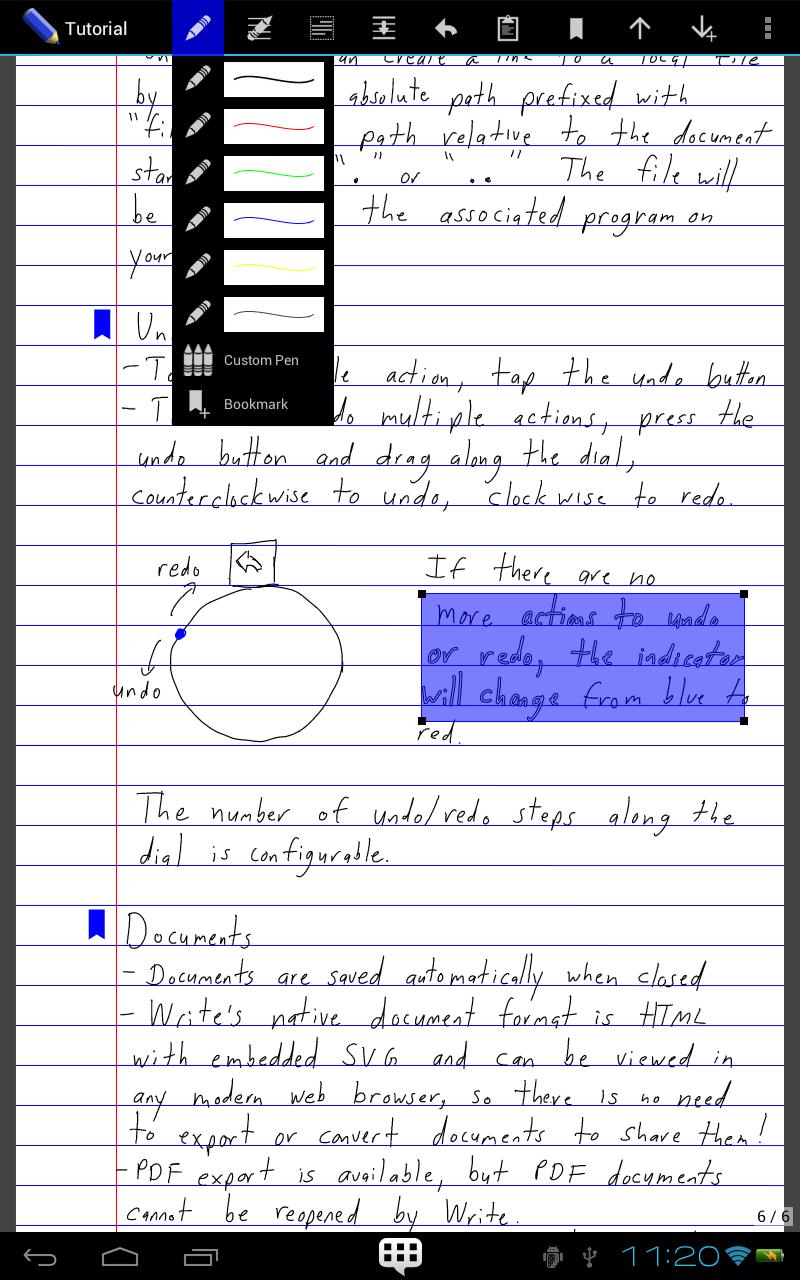 Tutorial
an create a link to a local file
by absolute path prefixed with
"fil path relative to the document
star "." or ".." The file will
be the associated program on
your
Un
- To le action, tap the undo button
- T do multiple actions, press the
undo button and drag along the dial,
counterclockwise to undo, clockwise to redo.
Custom Pen
Bookmark
redo
undo
If there are no
more actions to undo
or redo, the indicator
will change from blue to
red.
The number of undo/redo steps along the
dial is configurable.
Documents
- Documents are saved automatically when closed
- Write's native document format is HTML
with embedded SVG and can be viewed in
any modern web browser, so there is no need
to export or convert documents to share them!
- PDF export is available, but PDF documents
cannot be reopened by Write.
6/6
11:20